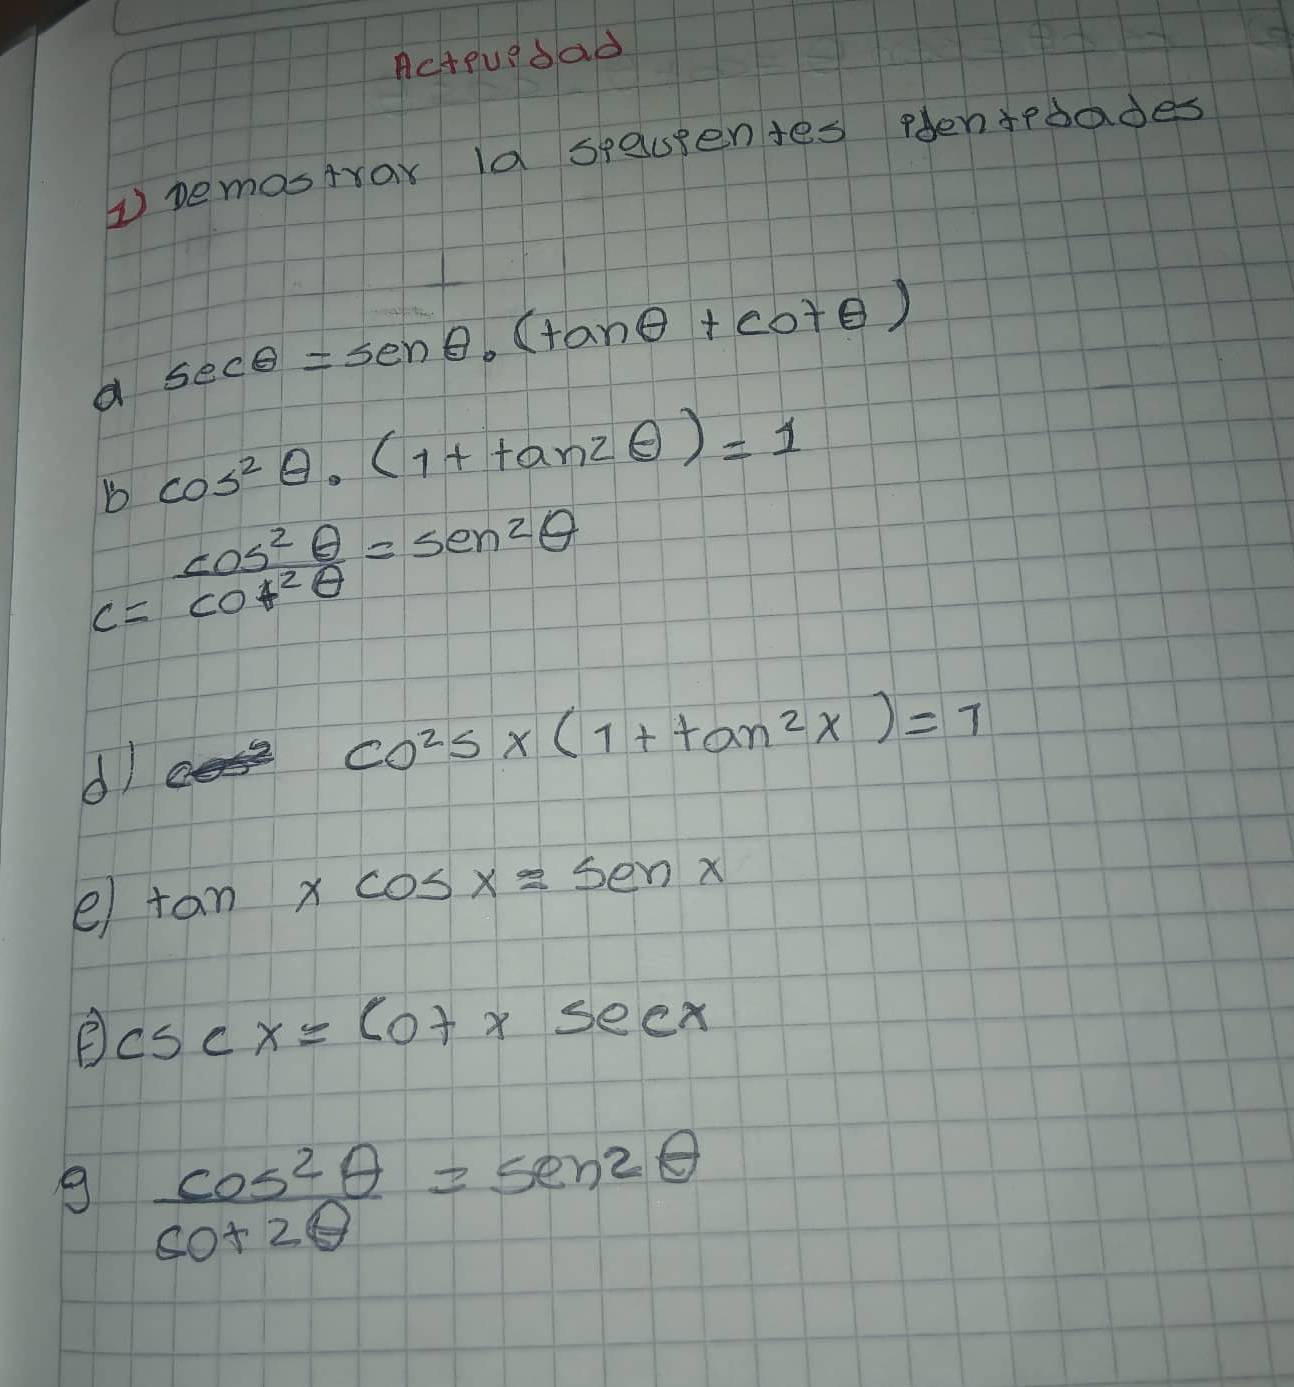 Actividad
1) Demostrar la siguientes identidades
a secθ = senθ.(tanθ + cotθ)
b cos² θ.(1 + tan2 θ) = 1
c = cos² θ / cot² θ = sen2θ
d) co²s x (1 + tan²x) = 1
e) tan x cos x = sen x
f) csc x = cot x secx
g cos² θ / cot 2θ = sen2 θ